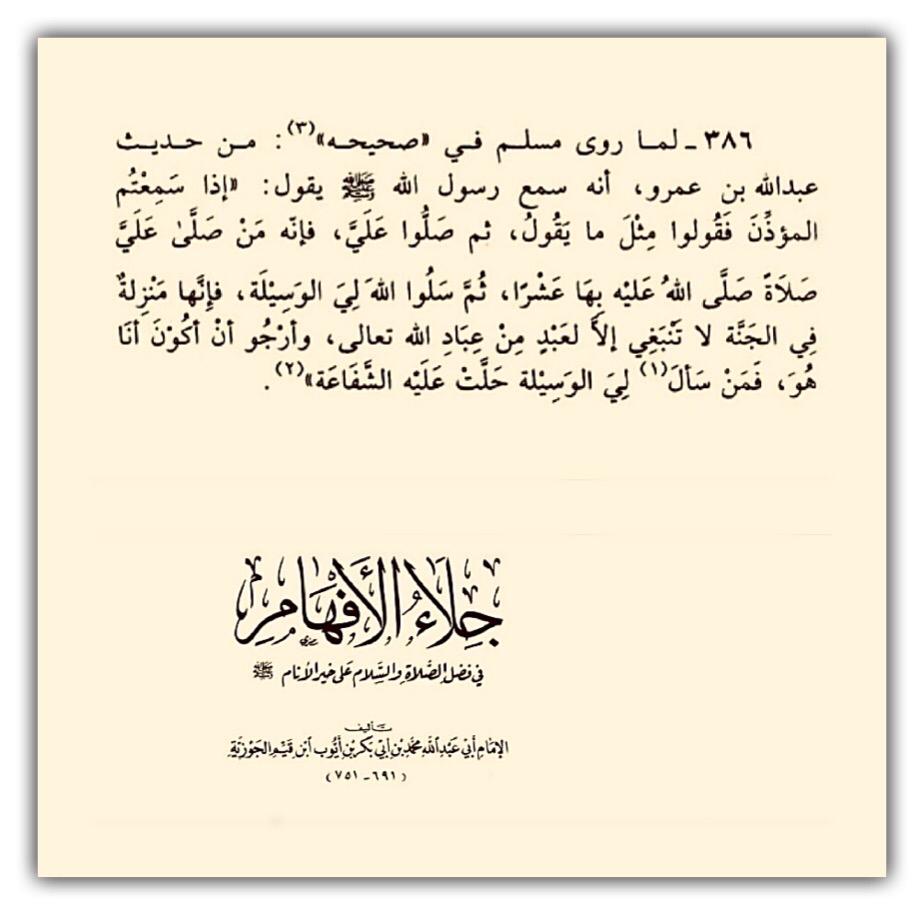 ٣٨٦ ـ لمـا روى مسلـم فـي «صحيحـه»(٣): مـن حـديـث
عبدالله بن عمرو، أنه سمع رسول الله ﷺ يقول: «إذا سَمِعْتُم
المؤذِّنَ فَقُولوا مِثْلَ ما يَقُولُ، ثم صَلُّوا عَلَيَّ، فإنّه مَنْ صَلَّىٰ عَلَيَّ
صَلَاةً صَلَّى اللهُ عَليْه بِهَا عَشْرًا، ثُمَّ سَلُوا اللهَ لِيَ الوَسِيْلَة، فإنَّها مَنْزِلةٌ
فِي الجَنَّة لا تَنْبَغِي إلاَّ لعَبْدٍ مِنْ عِبَادِ الله تعالى، وأرْجُو أنْ أكُوْنَ أنَا
هُوَ، فَمَنْ سَألَ(١) لِيَ الوَسِيْلة حَلَّتْ عَلَيْه الشَّفَاعَة»(٢).
جِلَاءُ الأَفْهَامِ
في فضل الصَّلاة والسَّلام على خير الأنام ﷺ
تأليف
الإمام أبي عَبْد الله محمَّد بن أبي بكر بن أيُّوب ابن قيِّم الجوزيَّة
(٦٩١ - ٧٥١)